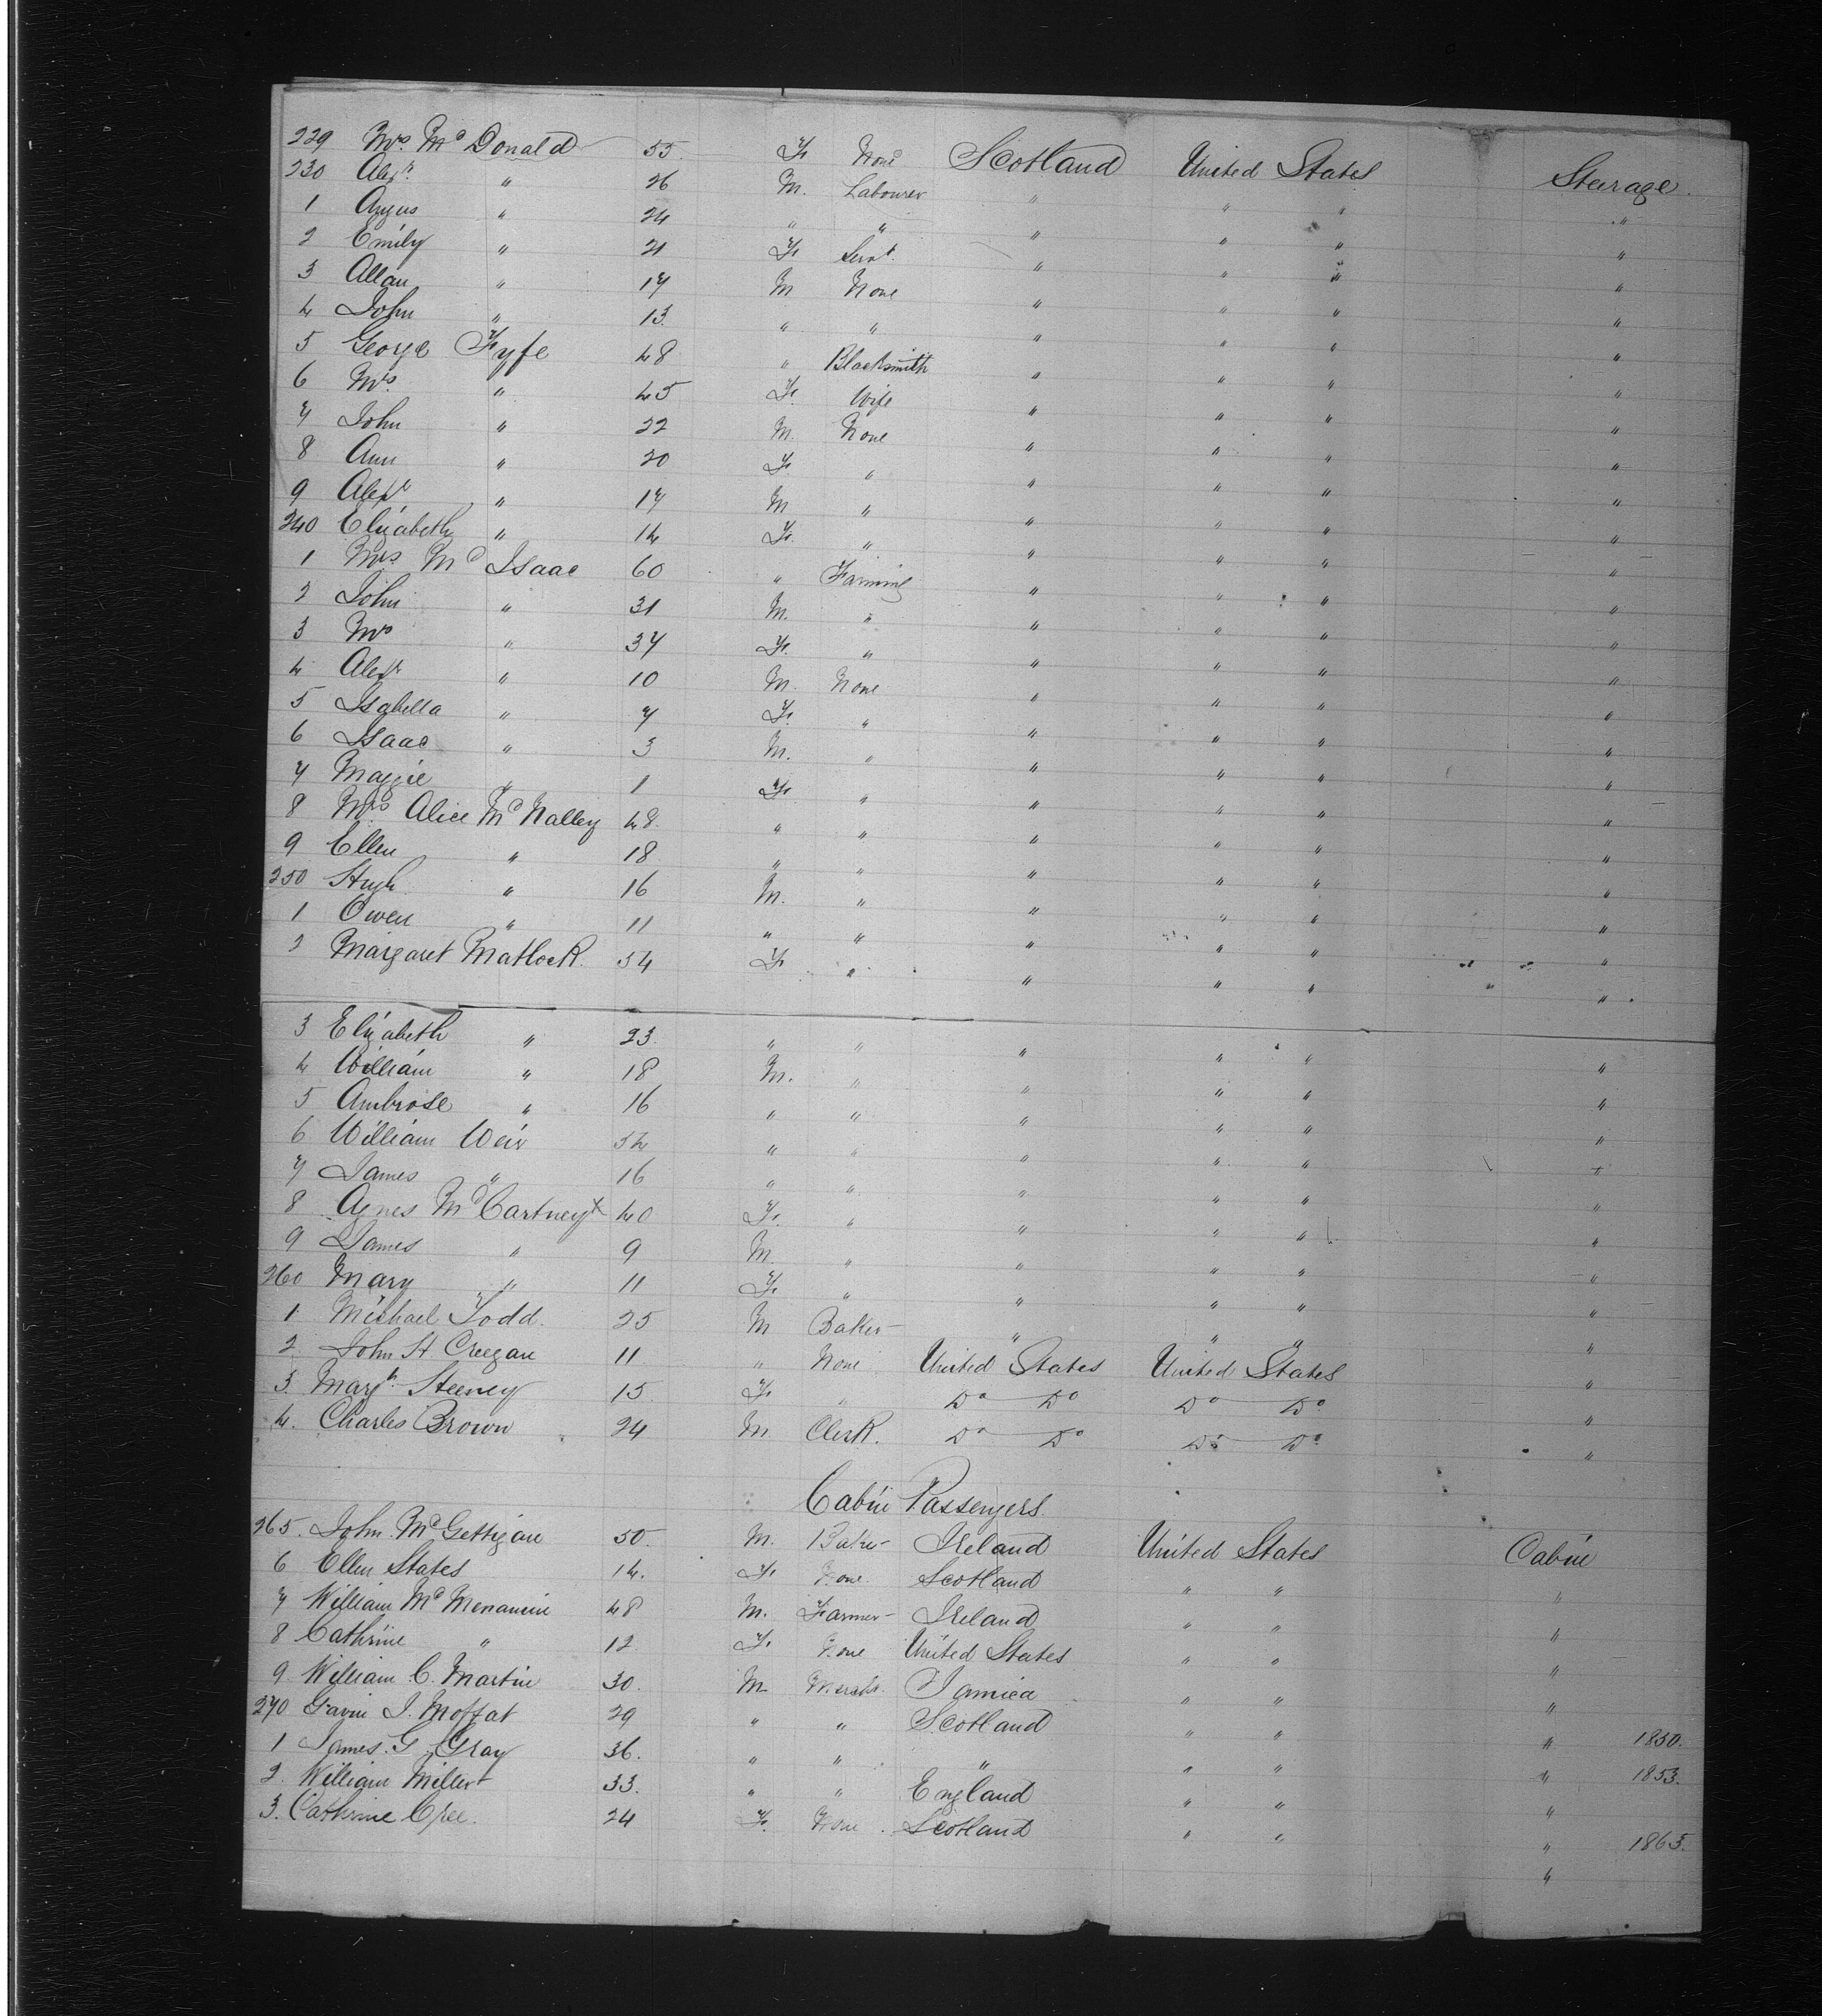 229 Mrs. McDonald 55 F. None Scotland United States Stearage.
230 Alexr. " 26 M. Labourer " " " "
1 Angus " 24 " " " " " "
2 Emily " 21 F. Servt. " " " "
3 Allan " 17 M None " " " "
4 John " 13 " " " " " "
5 George Fyfe 48 " Blacksmith " " " "
6 Mrs. " 45 F. Wife " " " "
7 John " 22 M. None " " " "
8 Ann " 20 F. " " " " "
9 Alexr " 17 M " " " " "
240 Elizabeth " 14 F. " " " " "
1 Mrs. Mc Isaac 60 " Farming " " " "
2 John " 31 M. " " " " "
3 Mrs " 37 F. " " " " "
4 Alexr " 10 M. None " " " "
5 Isabella " 7 F. " " " " "
6 Isaac " 3 M. " " " " "
7 Maggie " 1 F. " " " " "
8 Mrs. Alice McNalley 48. " " " " " "
9 Ellen " 18 " " " " " "
250 Hugh " 16 M. " " " " "
1 Owen " 11 " " " " " "
2 Margaret Matlock. 54 F. " " " " "
3 Elizabeth " 23 " " " " " "
4 William " 18 M. " " " " "
5 Ambrose " 16 " " " " " "
6 William Weir 54 " " " " " "
7 James " 16 " " " " " "
8 Agnes McCartney x 40 F. " " " " "
9 James " 9 M. " " " " "
260 Mary " 11 F. " " " " "
1 Michael Todd. 25 M Baker " " " "
2 John H. Creegan 11 " None United States United States "
3. Margt. Steeney 15 F. " Do Do Do Do "
4. Charles Brown 24 M Clerk. Do Do Do Do "
Cabin Passengers.
265. John McGettigan 50. M. Baker Ireland United States Cabin
6 Ellen States 14. F. None Scotland " " "
7 William McMenamin 48 M. Farmer Ireland " " "
8 Cathrine " 12 F. None United States " " "
9 William C. Martin 30. M Mercht. Jamica " " "
270 Gavin J. Moffat 29 " " Scotland " " " 1850.
1 James G. Gray 36. " " " " " " 1853.
2. William Miller 33. " " England " " "
3. Cathrine Cree. 24 F. None Scotland " " " 1865.
"